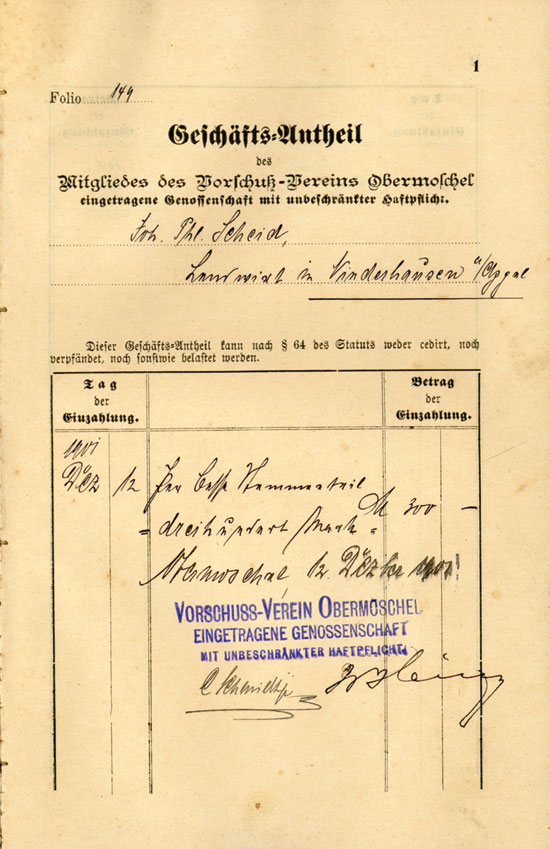 1
Folio 149
Geschäfts-Antheil
des
Mitgliedes des Vorschuß-Vereins Obermoschel
eingetragene Genossenschaft mit unbeschränkter Haftpflicht.
Joh. Phl. Scheid,
Landwirt in Niederhausen a/Appel
Dieser Geschäfts-Antheil kann nach § 64 des Statuts weder cedirt, noch
verpfändet, noch sonstwie belastet werden.
Tag
der
Einzahlung.
Betrag
der
Einzahlung.
1901
Dez 12 Per Stammanteil M 300 –
= dreihundert Mark =
Obermoschel 12. Dezbr 1901
VORSCHUSS-VEREIN OBERMOSCHEL
EINGETRAGENE GENOSSENSCHAFT
MIT UNBESCHRÄNKTER HAFTPFLICHT.